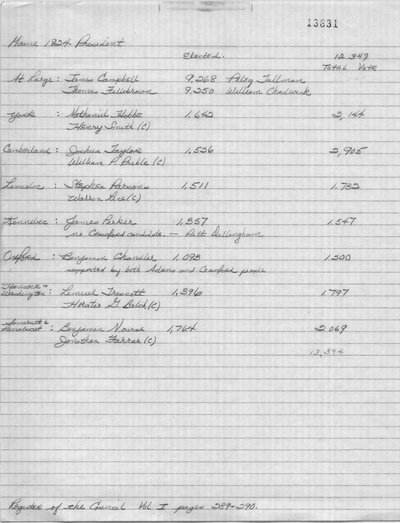 13831
Maine 1824 President
Elected. 12,349
Total Vote
At Large: James Campbell 9,268 Peleg Tallman
Thomas Fillebrown 9,250 William Chadwick
York: Nathaniel Hobbs 1,642 2,144
Henry Smith (C)
Cumberland: Joshua Taylor 1,526 2,905
William P. Preble (C)
Lincoln: Stephen Parsons 1,511 1,782
Warren (C)
Kennebec: James Parker 1,357 1,547
no Crawford candidate. — Dillingham
Oxford: Benjamin Chandler 1,093 1,200
supported by both Adams and Crawford people
Hancock &
Washington: Lemuel Trescott 1,396 1,797
Horatio G. Balch (C)
Somerset &
Penobscot: Benjamin Nourse 1,764 2,069
Jonathan Farrar (C)
13,394
Register of the Council Vol I pages 289-290.